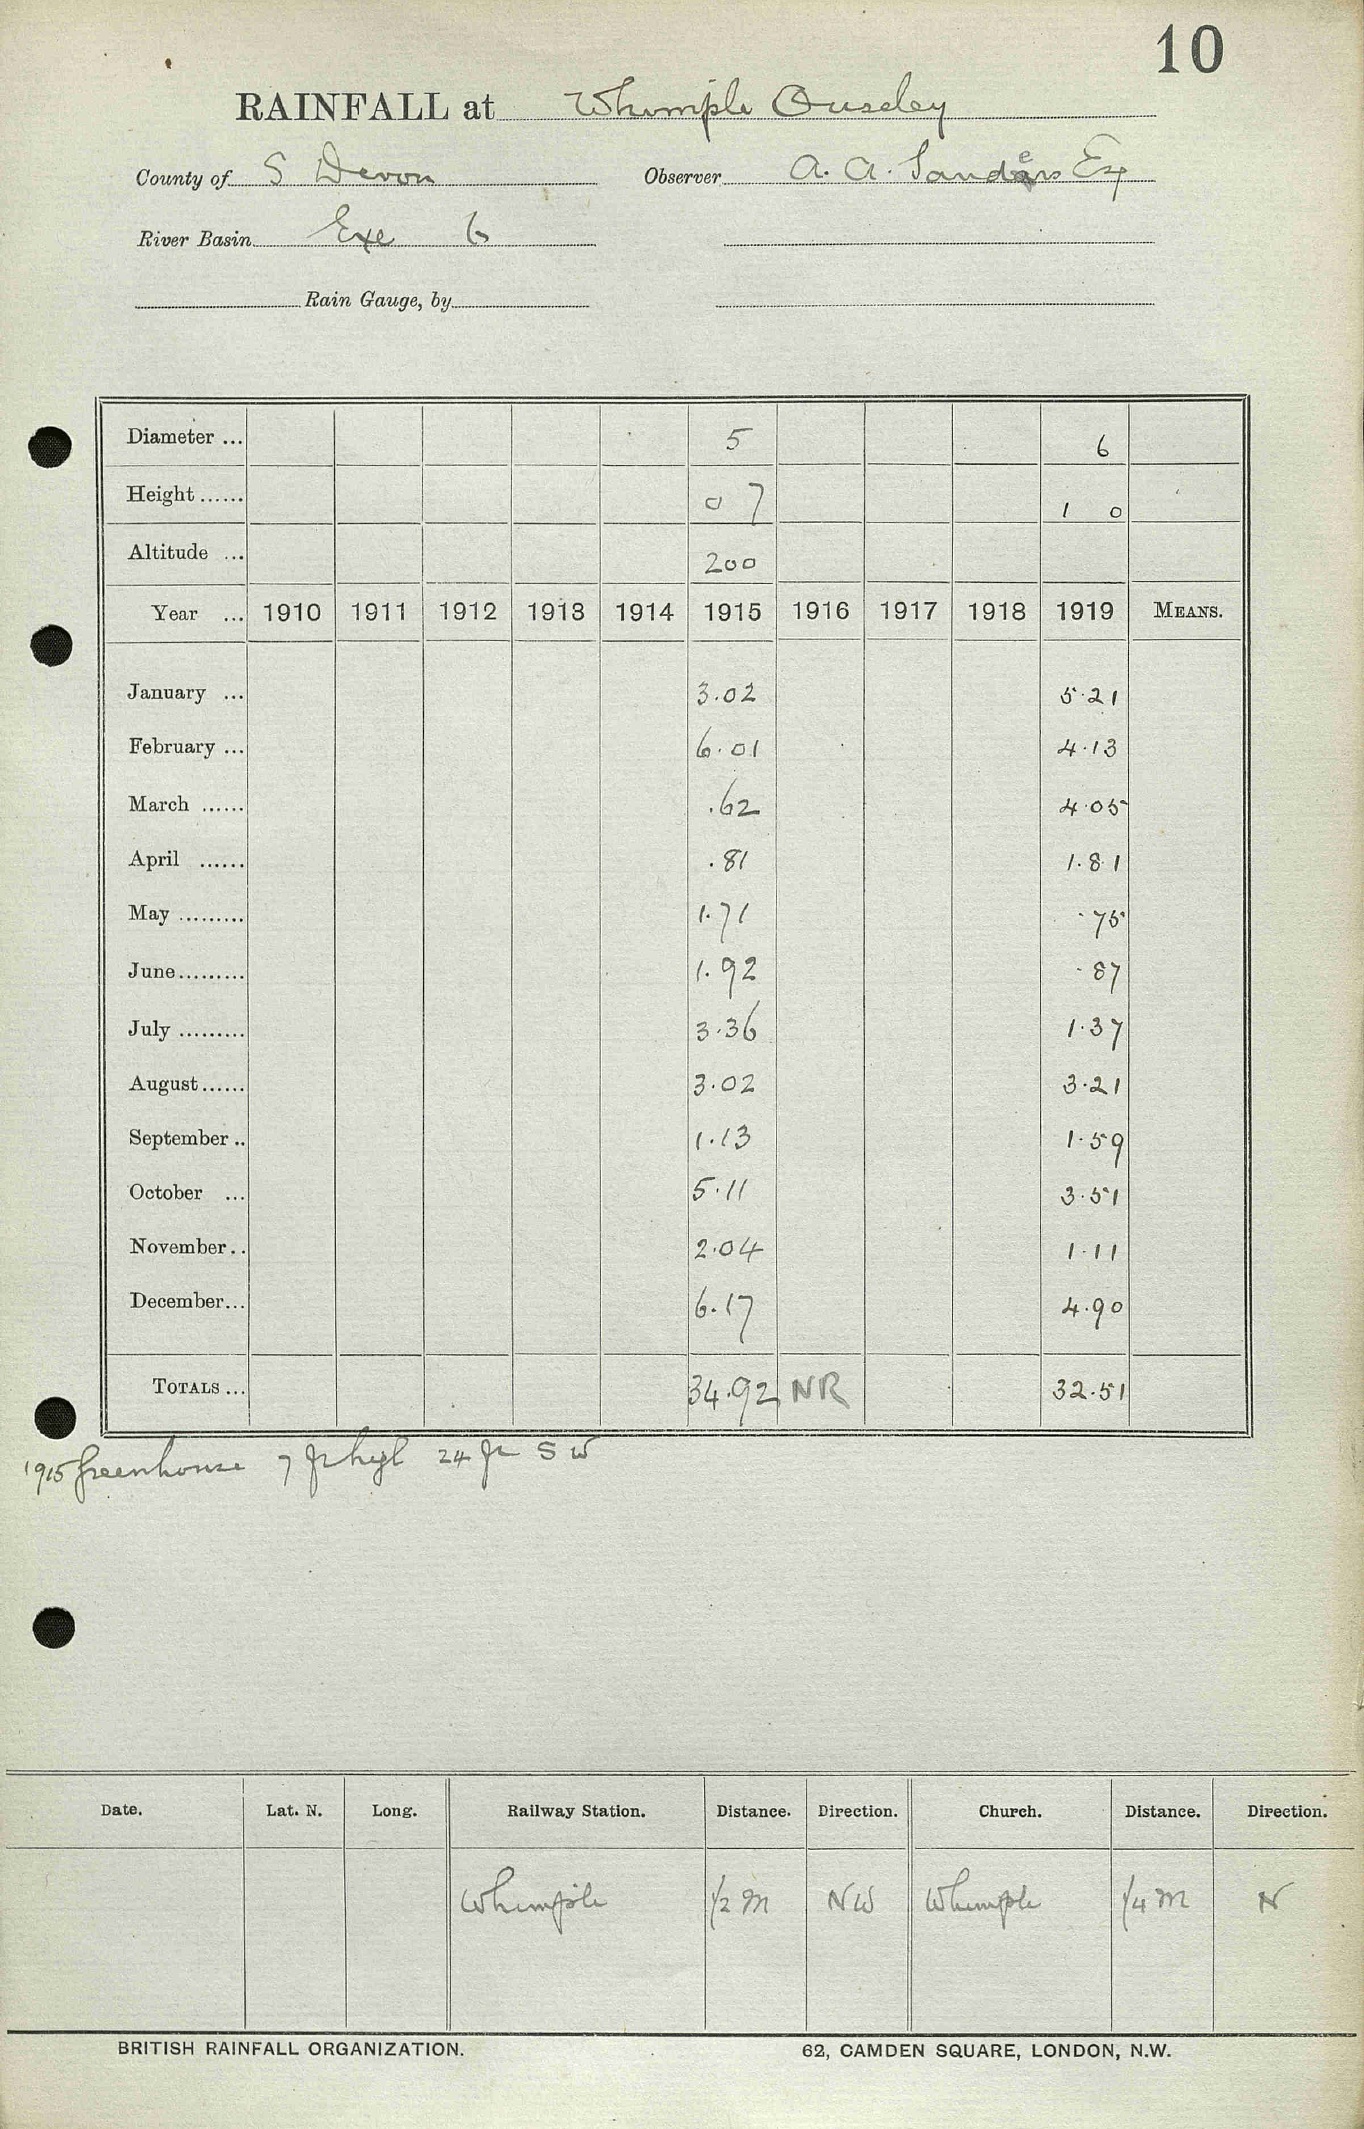 10
RAINFALL at Whimple Ouseley
County of S Devon Observer A. A. Sanders Esq
River Basin Exe 6
Rain Gauge, by
Diameter ... 5 6
Height ...... 0 7 1 0
Altitude ... 200
Year ... 1910 1911 1912 1913 1914 1915 1916 1917 1918 1919 MEANS.
January ... 3.02 5.21
February ... 6.01 4.13
March ...... .62 4.05
April ...... .81 1.81
May ......... 1.71 .75
June ......... 1.92 .87
July ......... 3.36 1.37
August ...... 3.02 3.21
September .. 1.13 1.59
October ... 5.11 3.51
November .. 2.04 1.11
December ... 6.17 4.90
TOTALS ... 34.92 NR 32.51
1915 Greenhouse 7 ft high 24 ft SW
Date. Lat. N. Long. Railway Station. Distance. Direction. Church. Distance. Direction.
Whimple 1/2 M NW Whimple 1/4 M N
BRITISH RAINFALL ORGANIZATION. 62, CAMDEN SQUARE, LONDON, N.W.